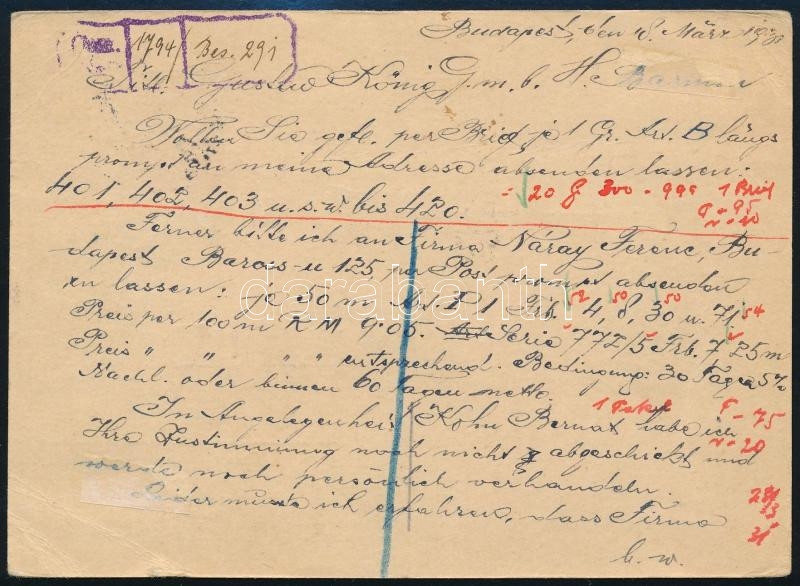 Budapest, den 18. März 19
1794/ Bes. 291
Tit. Gustav König G. m. b. H. Barmen
Wollen Sie gefl. per Brief je 1 Gr. Art. B längs
prompt an meine Adresse absenden lassen:
401, 402, 403 u. s. w. bis 420.
= 20 G 300 - 999 1 Brief
Ferner bitte ich an Firma Náray Ferenc, Bu-
dapest Baross-u 125 per Post prompt absenden
zu lassen: je 50 m Art. P 1 Frb. 4, 8, 30 u. 71
52 50 50 54
Preis per 100 m R M 9.05. Serie 772/5 Frb. 7 25 m
Preis " " " " entsprechend. Bedingung: 30 Tage 5%
Nachl. oder binnen 60 tagen netto.
1 Paket - 75
- 20
In Angelegenheit Kohn Bernat habe ich
Ihre Zustimmung noch nicht abgeschickt und
werde noch persönlich verhandeln.
Leider musste ich erfahren, dass Firma
b. w.
darabanth